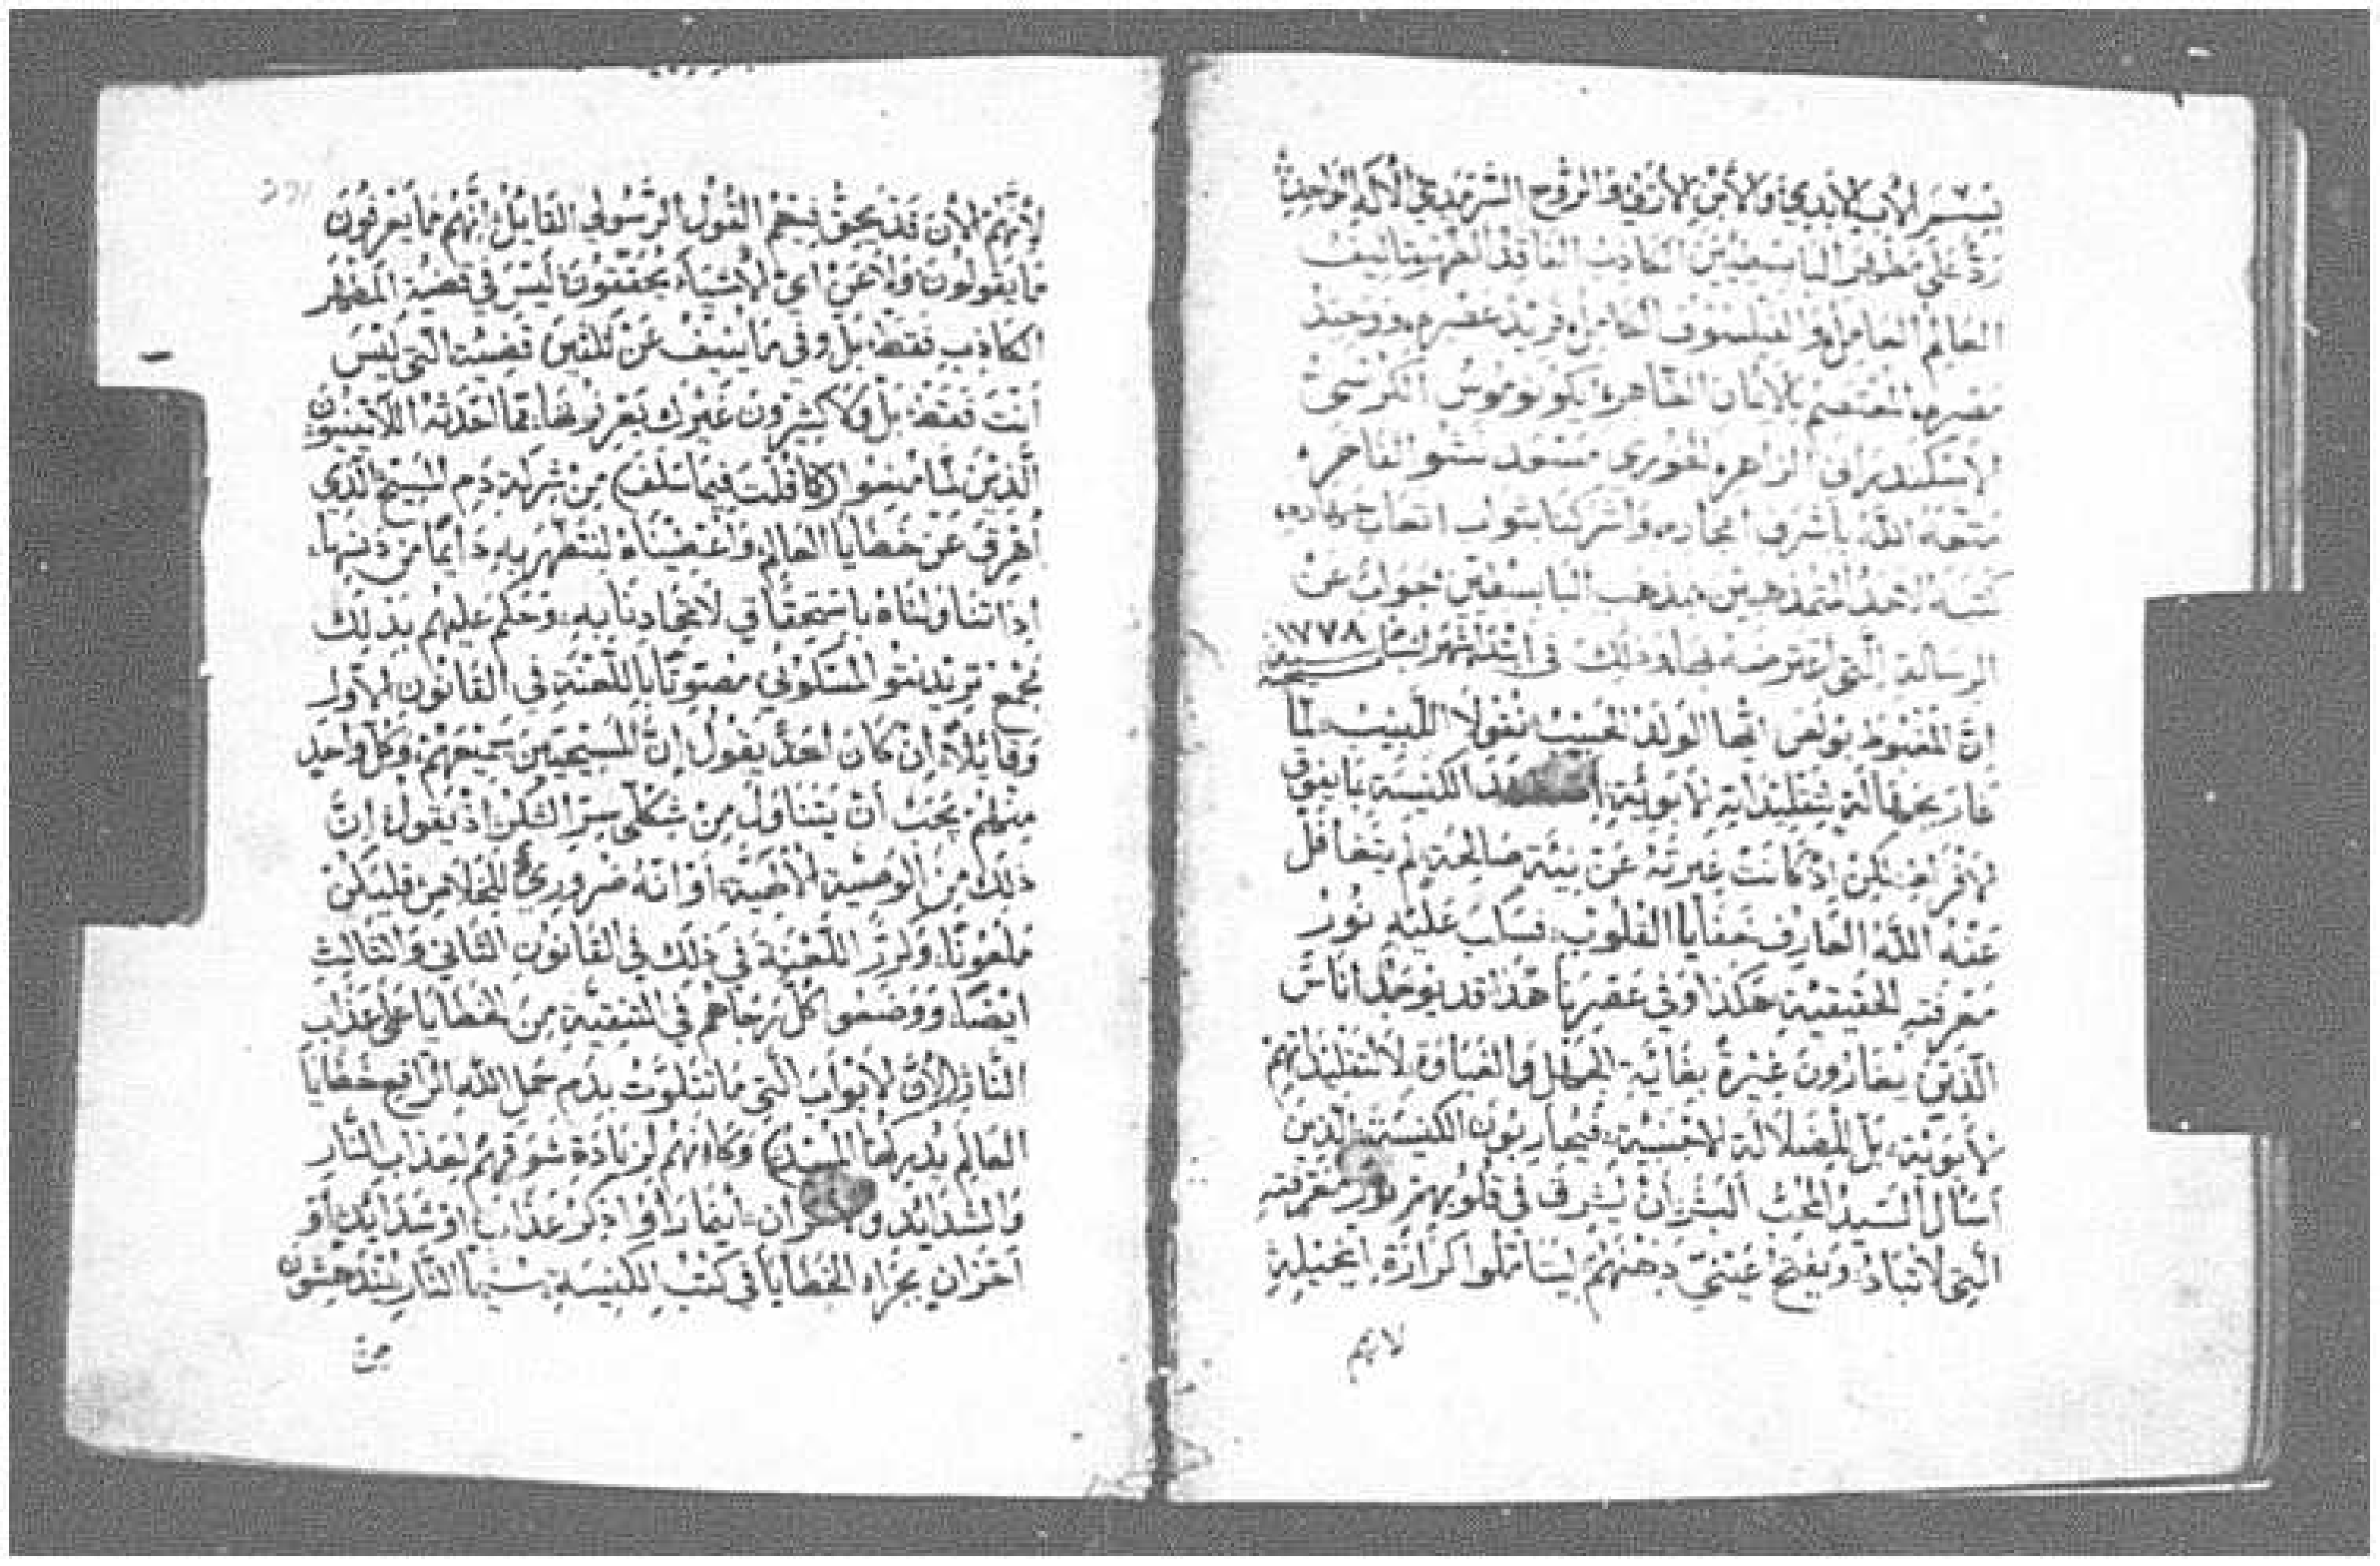 بسم الاب الابدي والابن الازلي والروح السرمدي الاله الواحد
رد على مطهر الباسيفيين الكاذب الفاقد
العالم العامل والفيلسوف الكامل فريد عصره ووحيد
مصره المعتصم بالامان ايكونوموس الكرسي
الاسكندري الزاهره الخوري مسعد نشو الفاخره
منحه الله باشرف واشركنا بثواب اتعابه
كتبه لاحد المتمذهبين بمذهب الباسيفيين جواب عن
الرسالة التي اعترضه بها وذلك في ابتدا شهر سنة ١٧٧٨ مسيحية
ان المغبوط بولص ايها الولد الحبيب نقولا اللبيب لما
غار بحرقالة لتقليداته الابوية الكنيسة
لكن اذ كانت غيرته عن نية صالحة لم يتغافل
عنه الله العارف خفايا القلوب فساب عليه نور
معرفته الحقيقية هكذا وفي عصرنا هذا قد يوجد اناس
الذين يغارون غيرة بغاية الجهل والغباوة لا لتقليداتهم
الابوية بل للضلالة الاجنبية فيحاربون الكنيسة الذين
اسال السيد المحب البشر ان يشرق في قلوبهم نور معرفته
التي لا تباد ويفتح عيني ذهنهم ليتاملوا كرازة انجيليه
لانهم
لانهم الان قد يحق فيهم القول الرسولي القايل انهم ما يعرفون
ما يقولون ولا عن اي الاشيا يحققون ليس في قضية المطهر
الكاذب فقط بل وفي ما سيف عن تلقين قضيته التي ليس
انت فقط بل وكثيرون غيرك بعرفونها مما احدثه اللاتينيون
الذين لما منعوا (كما قلت فيما سلف) من شركة دم المسيح الذي
اهرق عن خطايا العالم واعطيناه لنتطهر به دايما من دنسها
اذا تناولناه باستحقاق لاتحادنا به وحكم عليهم بذلك
مجمع تريدينتو المسكوني مصوتا باللعنة في القانون الاول
وقايلا ان كان احد يقول ان المسيحيين جميعهم وكل واحد
منهم يجب ان يتناول من شكلي سر الشكر اذ يقول ان
ذلك من الوصية الالهية او انه ضروري للخلاص فليكن
ملعونا وكرر اللعنة في ذلك في القانون الثاني والثالث
ايضا ووضعوا كل رجاهم في التنقية من الخطايا على عذاب
النار (لان الابواب التي ما تتلوث بدم حمل الله الرافع خطايا
العالم يدركها المفسد) وكانهم لزيادة شوقهم لعذاب النار
والشدايد والاحزان اينما راوا ذكر عذاب او شدايد او
احزان بجزاء الخطايا في كتب الكنيسة سيما النار يندهشون
من